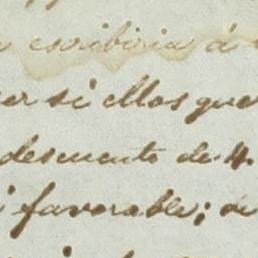 escribiria á
er si ellos que
descuento de 4.
favorable; de